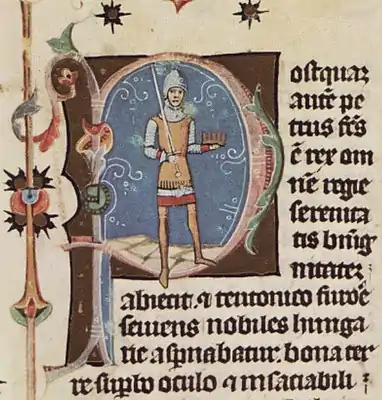 ostquaz
autē pe
trus fcs̄
ē rex om
nē regie
serenita
tis bnig
nitatez
abiecit. ⁊ teutonico furoē
seuiens nobiles hunga
rie aspnabatur. bona ter
re supbo oculo ⁊ insaciabili